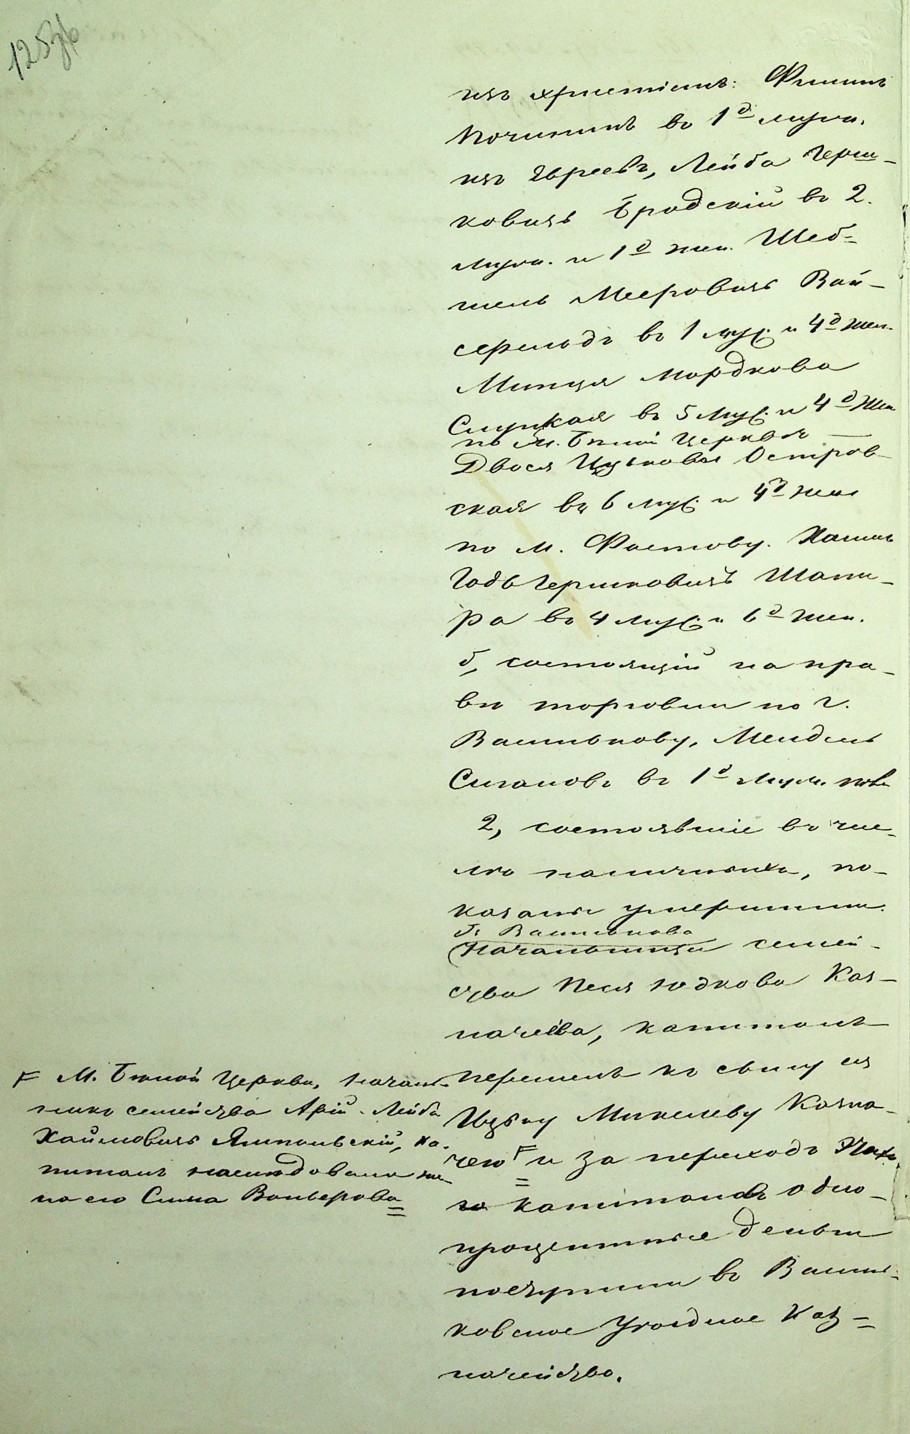 125 об
изъ христіанъ: Филипъ
Починипъ въ 1д муж.
изъ Евреевъ, Лейба Герш-
ковичъ Бродскій въ 2.
муж. и 1д жен. Шев-
тель Мееровичъ Вай-
серельдъ въ 1 муж. и 4д жен.
Минця Мордкова
Слуцкая въ 5 муж. и 4д жен
по м. Бѣлой Церквѣ —
Двося Ицькова Остров-
ская въ 6 муж. и 4д жен
по м. Фастову. Хаимъ
Гершковичъ Шапи-
ра въ 4 муж. и 6д жен.
б, состоящій на пра-
вѣ торговли по г.
Василькову, Мендель
Сигаловъ въ 1д муж. пола
2, состоявшіе въ чис-
лѣ наличныхъ, по-
казаны умершими.
г. Василькова
Начальница семей-
ства Песя Юдкова Каз-
начеева, капиталъ
перешелъ къ сыну ея
Ицьку Михелеву Казна-
чею и за переходъ
капиталовъ одно-
процентные деньги
поступили въ Василь-
ковское Уѣздное Каз-
начейство.
М. Бѣлой Церкви, Началь-
никъ семейства Арій-Лейба
Хаймовичъ Ямпольскій, ка-
питалъ наслѣдовала же-
на его Сима Вольфова